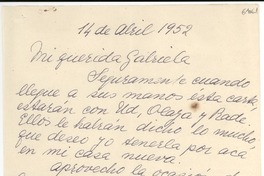 14 de Abril 1952
Mi querida Gabriela
Seguramente cuando
llegue a sus manos ésta carta
estarán con Ud, Olaya y Rade.
Ellos le habrán dicho lo mucho
que deseo yo tenerla por acá
en mi casa nueva.
Aprovecho la ocasión de